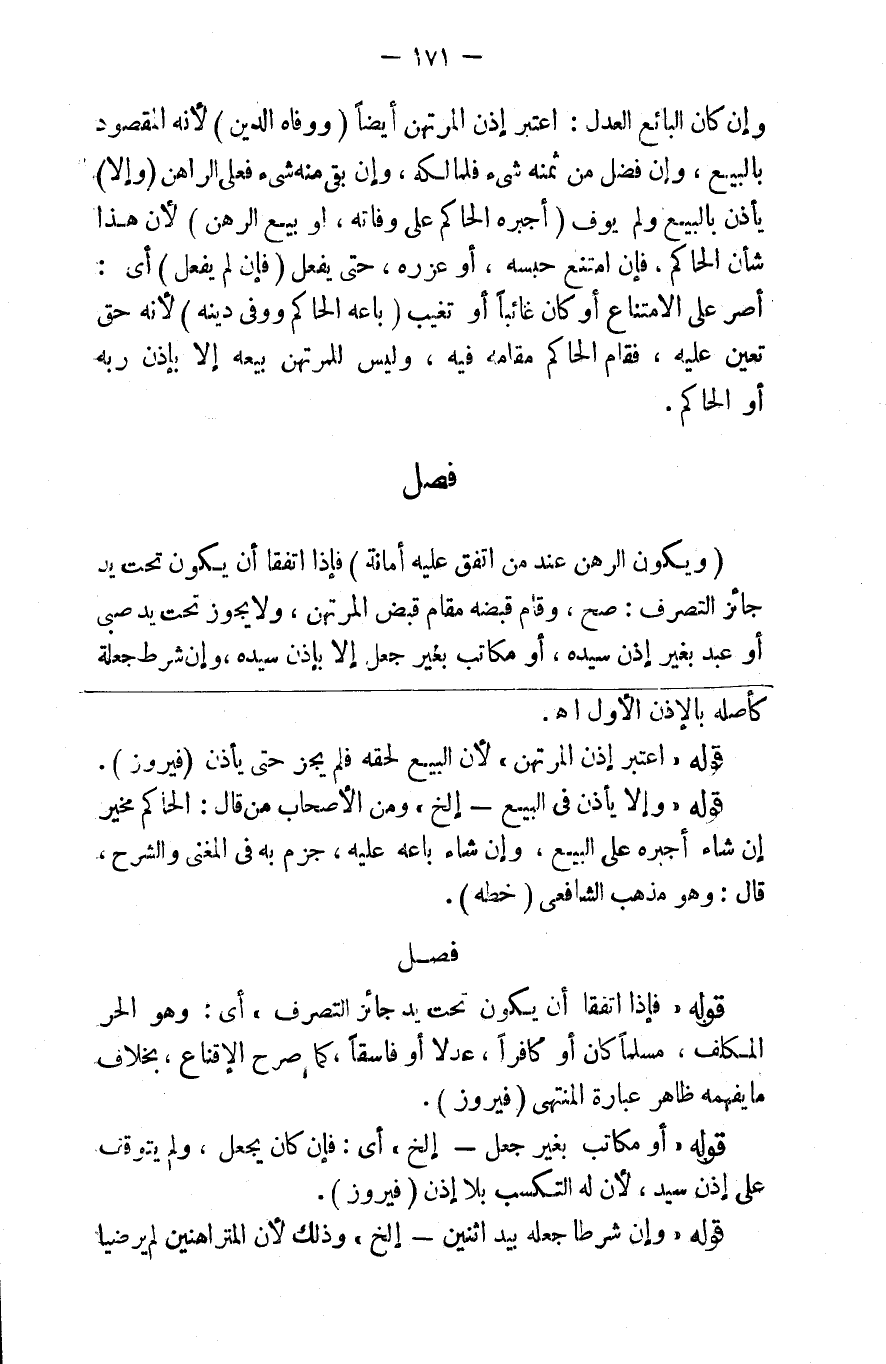 — ١٧١ —
وإن كان البائع العدل : اعتبر إذن المرتهن أيضاً ( ووفاه الدين ) لأنه المقصود
بالبيع ، وإن فضل من ثمنه شىء فلمالكه ، وإن بقى منه شىء فعلى الراهن (وإلا)
يأذن بالبيع ولم يوف ( أجبره الحاكم على وفائه ، او بيع الرهن ) لأن هـذا
شأن الحاكم . فإن امتنع حبسه ، أو عزره ، حتى يفعل ( فإن لم يفعل ) أى :
أصر على الامتناع أو كان غائباً أو تغيب ( باعه الحاكم ووفى دينه ) لأنه حق
تعين عليه ، فقام الحاكم مقامه فيه ، وليس للمرتهن بيعه إلا بإذن ربه
أو الحاكم .
فصل
( ويكون الرهن عند من اتفق عليه أمانة ) فإذا اتفقا أن يكون تحت يد
جائز التصرف : صح ، وقام قبضه مقام قبض المرتهن ، ولا يجوز تحت يد صبى
أو عبد بغير إذن سيده ، أو مكاتب بغير جعل إلا بإذن سيده ، وإن شرط جعلة
كأصله بالإذن الأول اه .
قوله « اعتبر إذن المرتهن » لأن البيع لحقه فلم يجز حتى يأذن (فيروز ) .
قوله « وإلا يأذن فى البيع — إلخ » ومن الأصحاب من قال : الحاكم مخير
إن شاء أجبره على البيع ، وإن شاء باعه عليه ، جزم به فى المغنى والشرح ،
قال : وهو مذهب الشافعى ( خطه ) .
فصـل
قوله « فإذا اتفقا أن يكون تحت يد جائز التصرف » أى : وهو الحر
المكلف ، مسلماً كان أو كافراً ، عدلا أو فاسقاً ، كما صرح الإقناع ، بخلاف
ما يفهمه ظاهر عبارة المنتهى ( فيروز ) .
قوله « أو مكاتب بغير جعل — إلخ » أى : فإن كان بجعل ، ولم يتوقف
على إذن سيد ، لأن له التكسب بلا إذن ( فيروز ) .
قوله « وإن شرطا جعله بيد اثنين — إلخ » وذلك لأن المتراهنين لم يرضيا